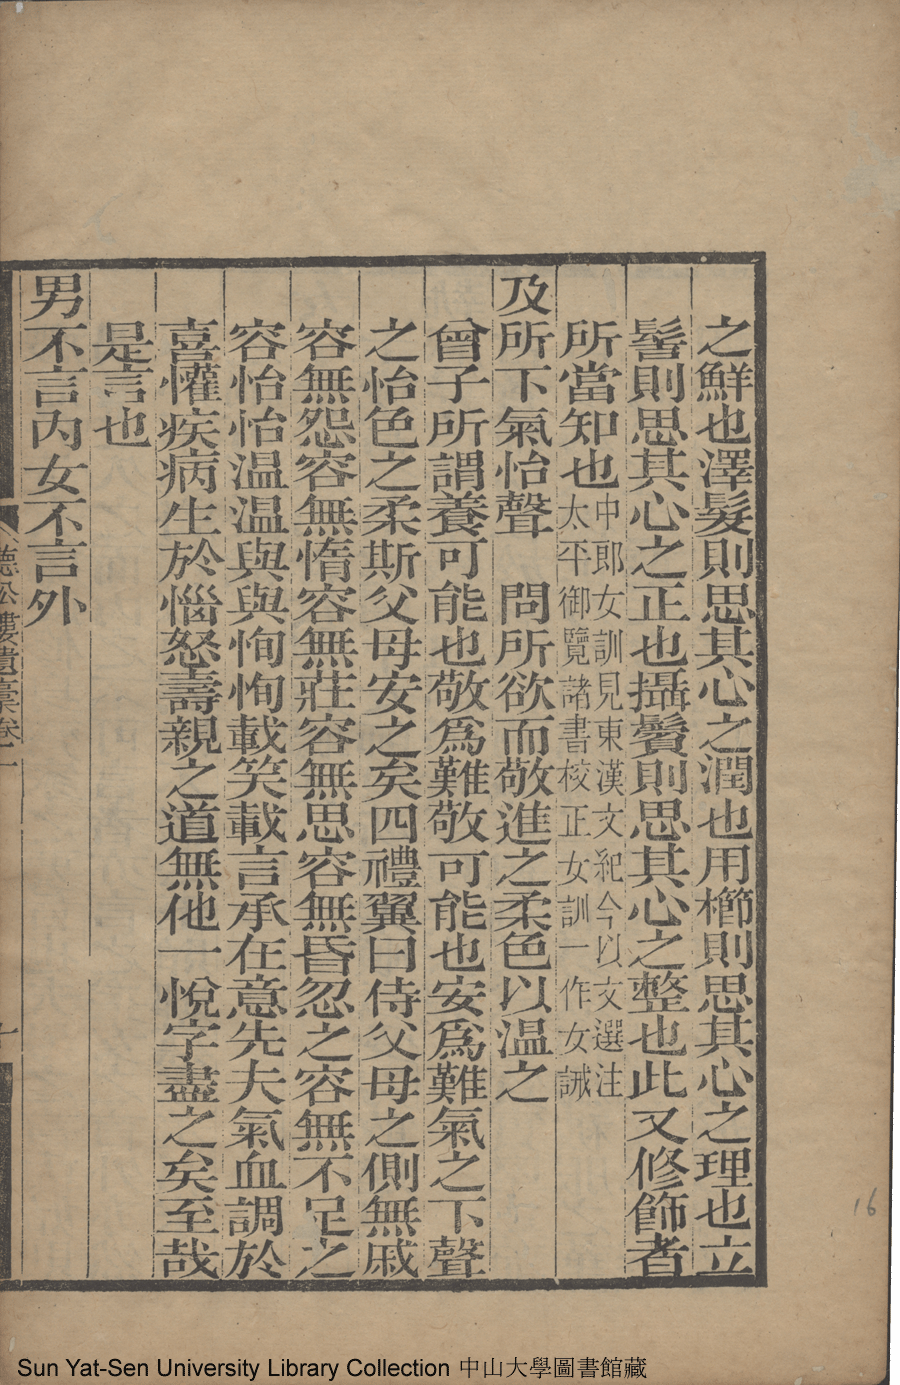 之鮮也澤髮則思其心之潤也用櫛則思其心之理也立
髻則思其心之正也攝鬢則思其心之整也此又修飾者
所當知也中郎女訓見東漢文紀今以文選注
太平御覽諸書校正女訓一作女誡
及所下氣怡聲　問所欲而敬進之柔色以温之
曾子所謂養可能也敬爲難敬可能也安爲難氣之下聲
之怡色之柔斯父母安之矣四禮翼曰侍父母之側無戚
容無怨容無惰容無莊容無思容無昏忍之容無不足之
容怡怡温温與與恂恂載笑載言承在意先夫氣血調於
喜懽疾病生於惱怒壽親之道無他一悅字盡之矣至哉
是言也
男不言内女不言外
樓遺藁卷一
十
16
Sun Yat-Sen University Library Collection 中山大學圖書館藏